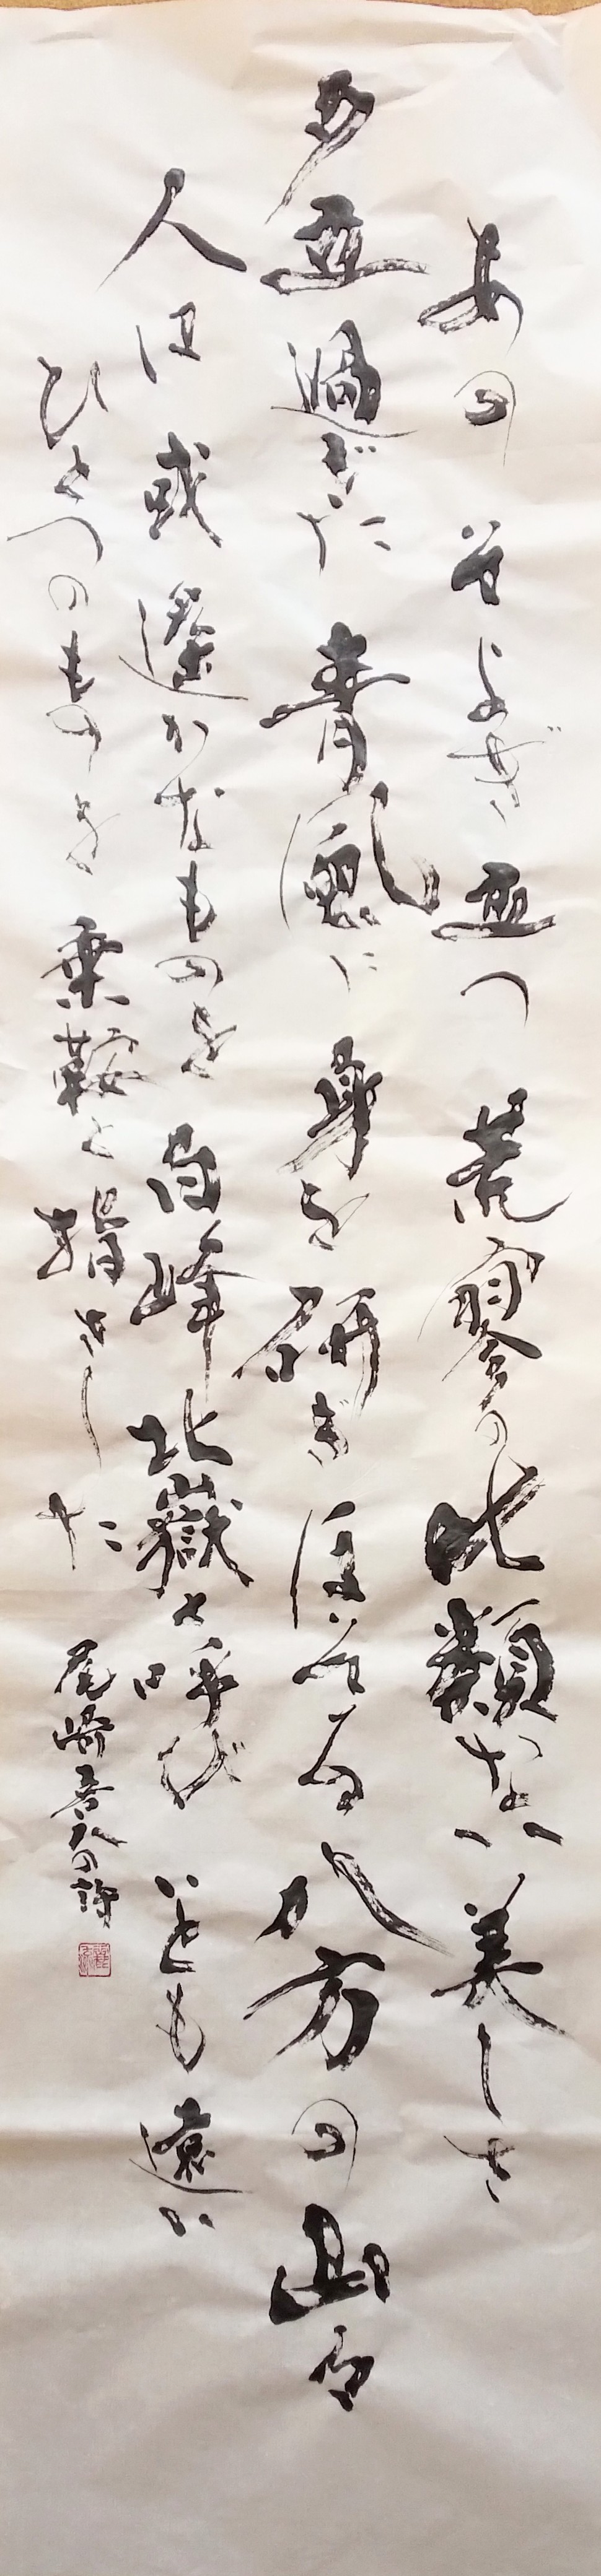 あの そよぎ立つ 荒寥の比類ない美しさ
夕立過ぎた青嵐に身を研ぎ 八方の山々
人は或遥かなものを白峰北嶽と呼び いとも遠い
ひとつのものを乗鞍と指さした 尾崎喜八の詩